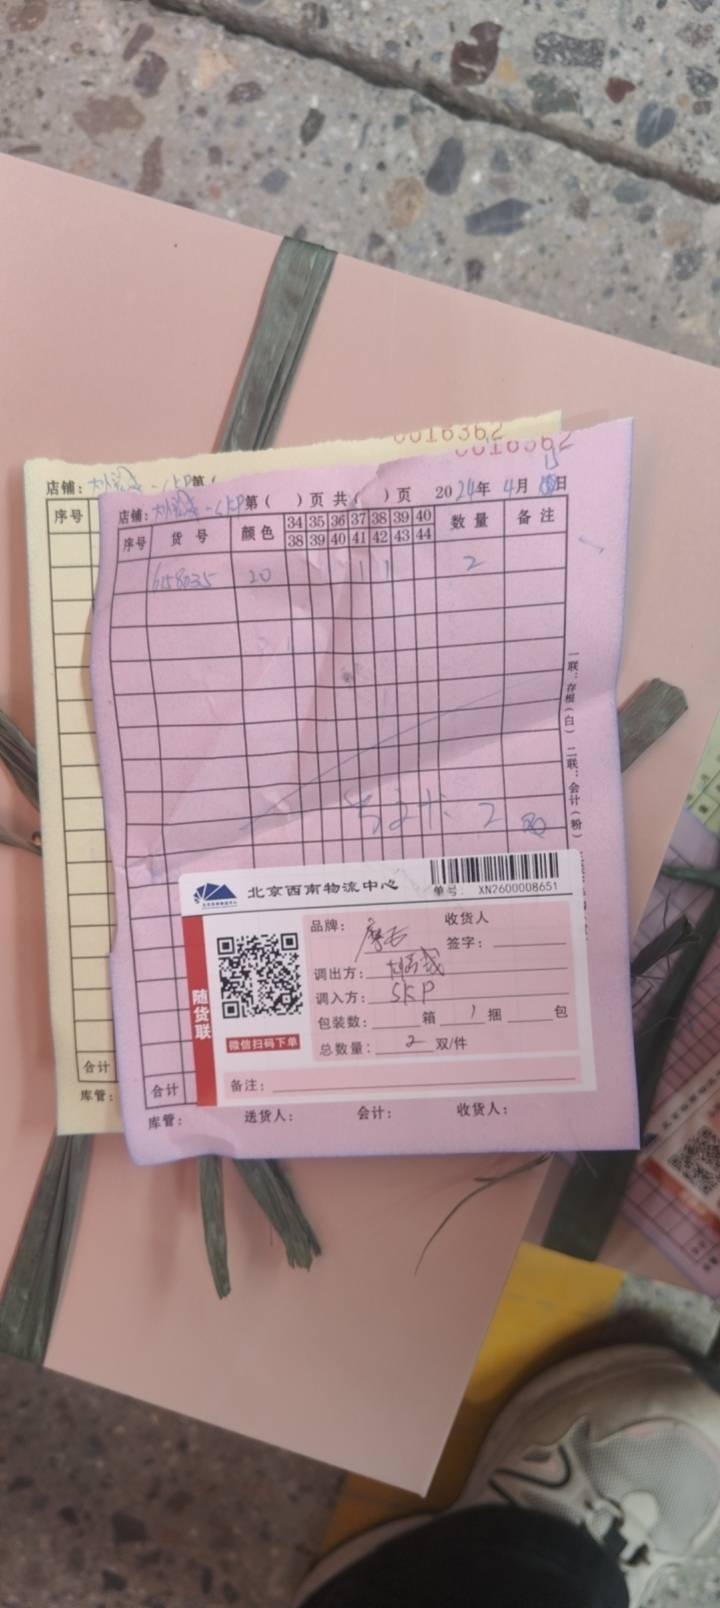 0016362
0016362
店铺:
序号
合计
库管:
店铺: SKP第( )页 共( )页 2024年 4月 日
序号 货号 颜色 34 35 36 37 38 39 40 数量 备注
38 39 40 41 42 43 44
658035 20 1 1 2
2
一联:存根(白) 二联:会计(粉)
合计
库管: 送货人: 会计: 收货人:
北京西南物流中心
单号: XN2600008651
随货联
微信扫码下单
品牌: 收货人
签字:
调出方:
调入方: SKP
包装数: 箱 1 捆 包
总数量: 2 双/件
备注: